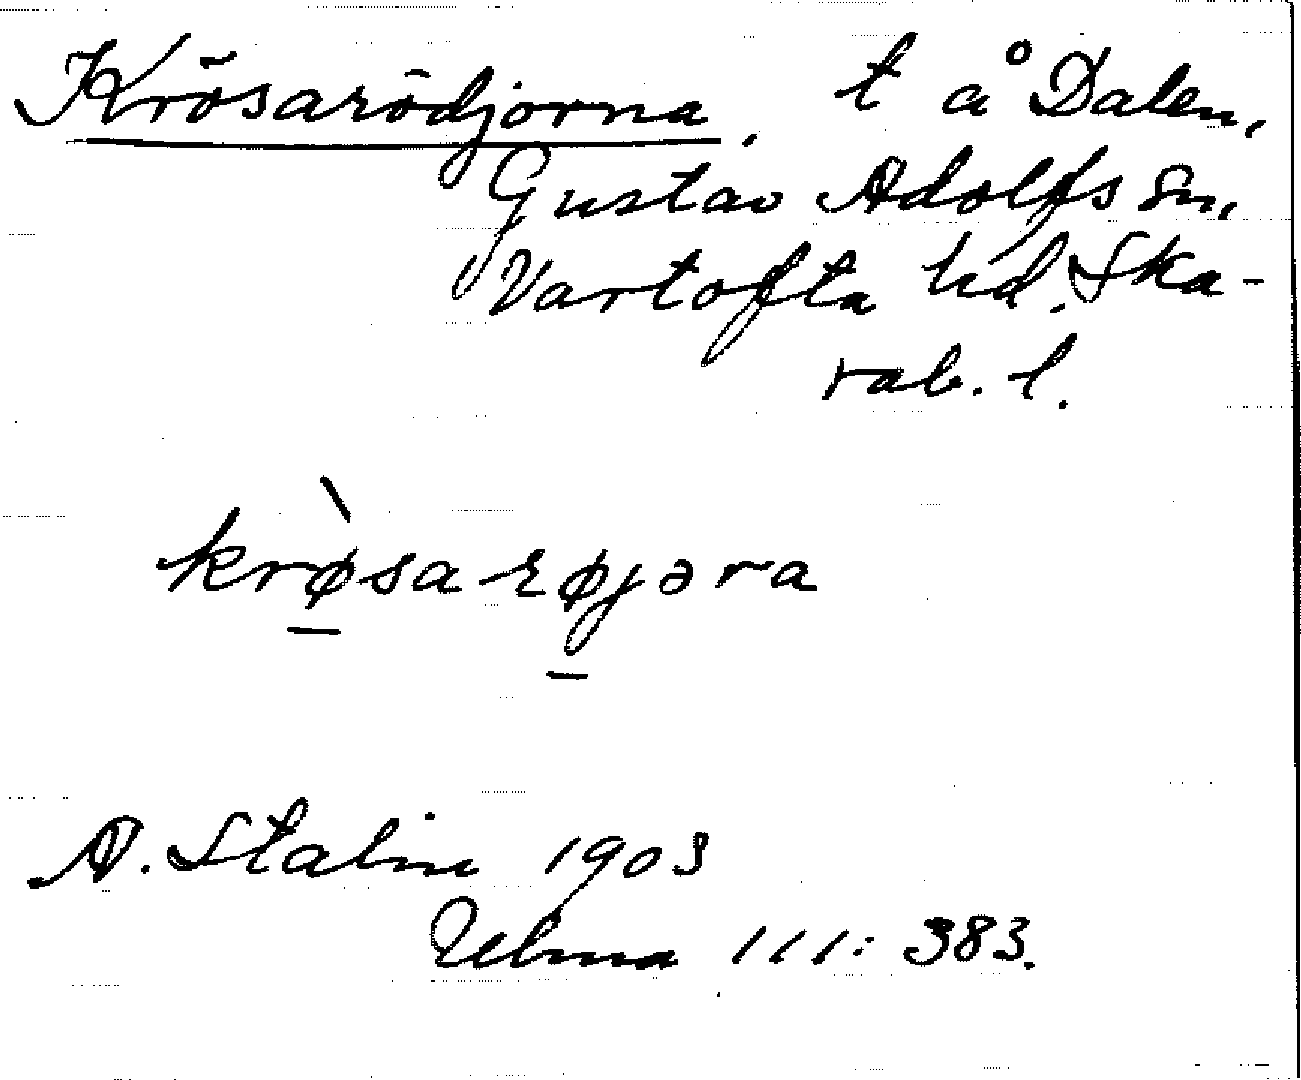 Krösarödjorna. t å Dalen,
Gustav Adolfs sn,
Vartofta hd. Ska-
rab. l.
krø̀sarøjəra
A. Stalin 1903
Ulma 111: 383.